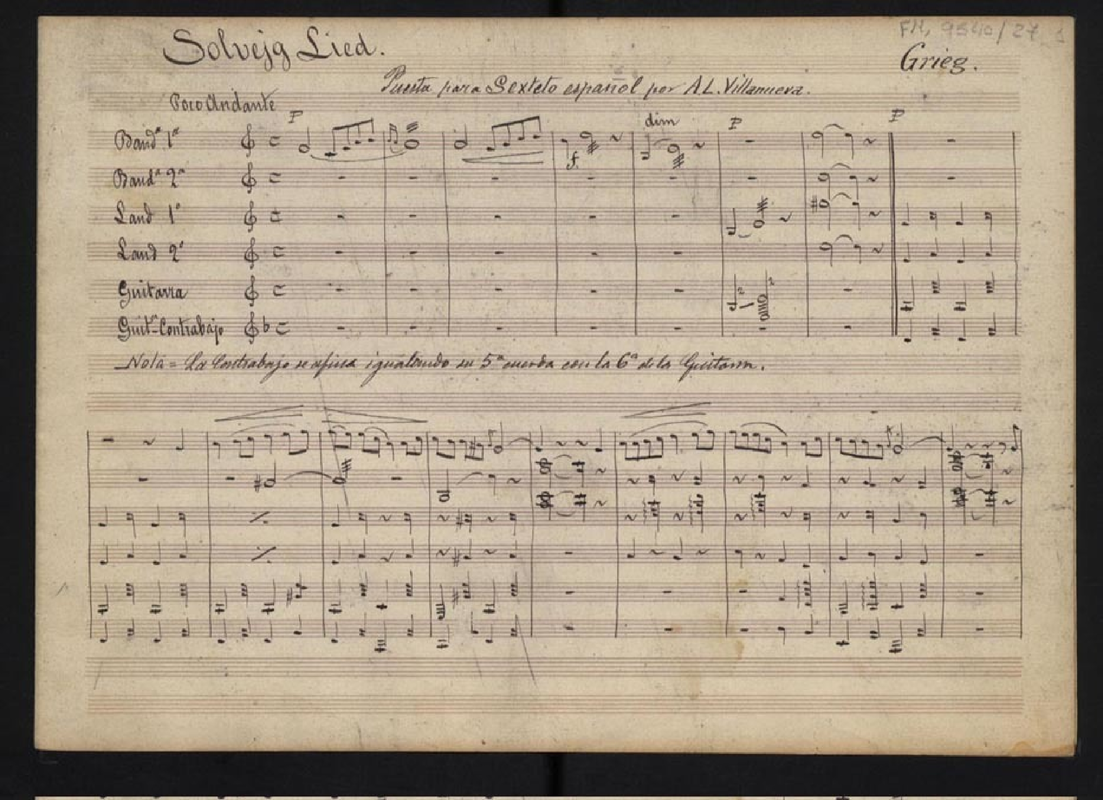 Solvejg Lied.
FM, 9540/27 1
Grieg.
Puesta para Sexteto español por A L. Villanueva.
Poco Andante
P
dim
P
P
Band.ª 1ª
f.
Band.ª 2ª
Laud 1º
Laud 2º
Guitarra
Guit.ª-Contrabajo
Nota = La Contrabajo se afina igualando su 5ª cuerda con la 6ª de la Guitarra.